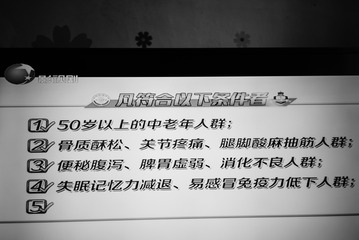 凡符合以下条件者
1 50岁以上的中老年人群;
2 骨质酥松、关节疼痛、腿脚酸麻抽筋人群;
3 便秘腹泻、脾胃虚弱、消化不良人群;
4 失眠记忆力减退、易感冒免疫力低下人群;
5